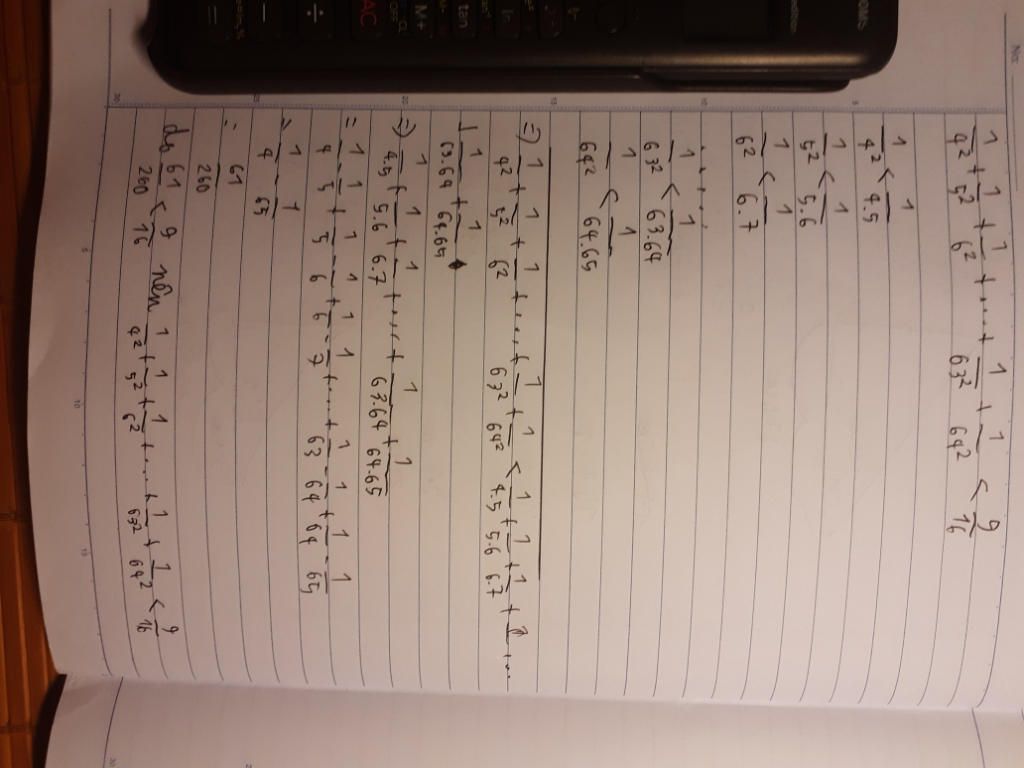 1/4² + 1/5² + 1/6² + .... + 1/63² + 1/64² < 9/16
1/4² < 1/4.5
1/5² < 1/5.6
1/6² < 1/6.7
....
1/63² < 1/63.64
1/64² < 1/64.65
=> 1/4² + 1/5² + 1/6² + .... + 1/63² + 1/64² < 1/4.5 + 1/5.6 + 1/6.7 + ...
+ 1/63.64 + 1/64.65
=> 1/4.5 + 1/5.6 + 1/6.7 + .... + 1/63.64 + 1/64.65
= 1/4 - 1/5 + 1/5 - 1/6 + 1/6 - 1/7 + .... + 1/63 - 1/64 + 1/64 - 1/65
= 1/4 - 1/65
= 61/260
do 61/260 < 9/16 nên 1/4² + 1/5² + 1/6² + .... + 1/63² + 1/64² < 9/16
tan
AC
M+
ln
÷
−
=
No:
5
10
15
20
25
30
5
10
15